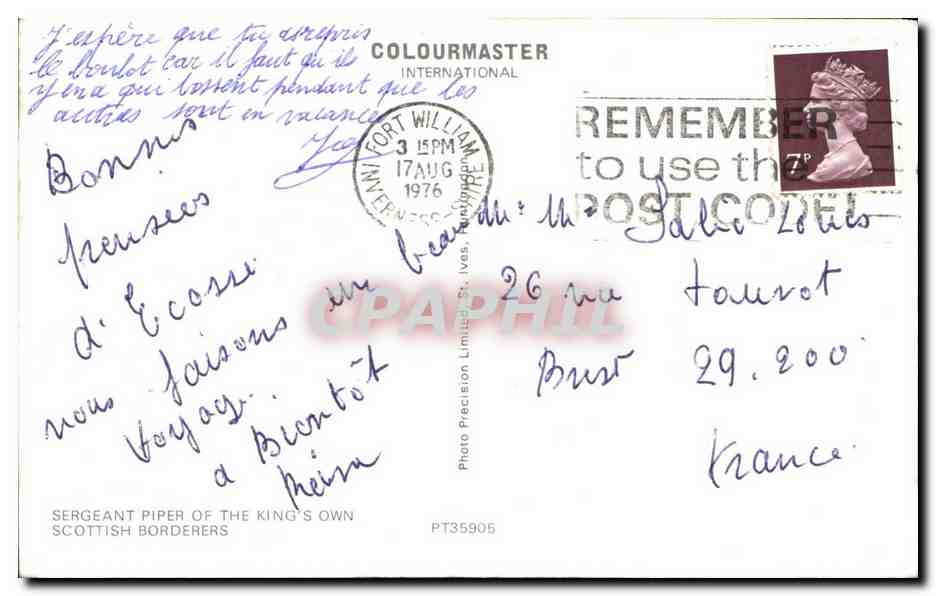 J'espère que tu as repris
le boulot car il faut qu'ils
y en a qui bossent pendant que les
autres sont en vacances
COLOURMASTER
INTERNATIONAL
FORT WILLIAM
3 15 PM
17 AUG
1976
INVERNESS-SHIRE
REMEMBER
to use the
POST CODE!
7P
Bonnes
pensées
d'Ecosse
nous faisons un beau
voyage.
a Bientôt
Mr Mme Louis
26 rue
Brest 29.200
France
CPAPHIL
Photo Precision Limited, St. Ives, Huntingdon
SERGEANT PIPER OF THE KING'S OWN
SCOTTISH BORDERERS
PT35905